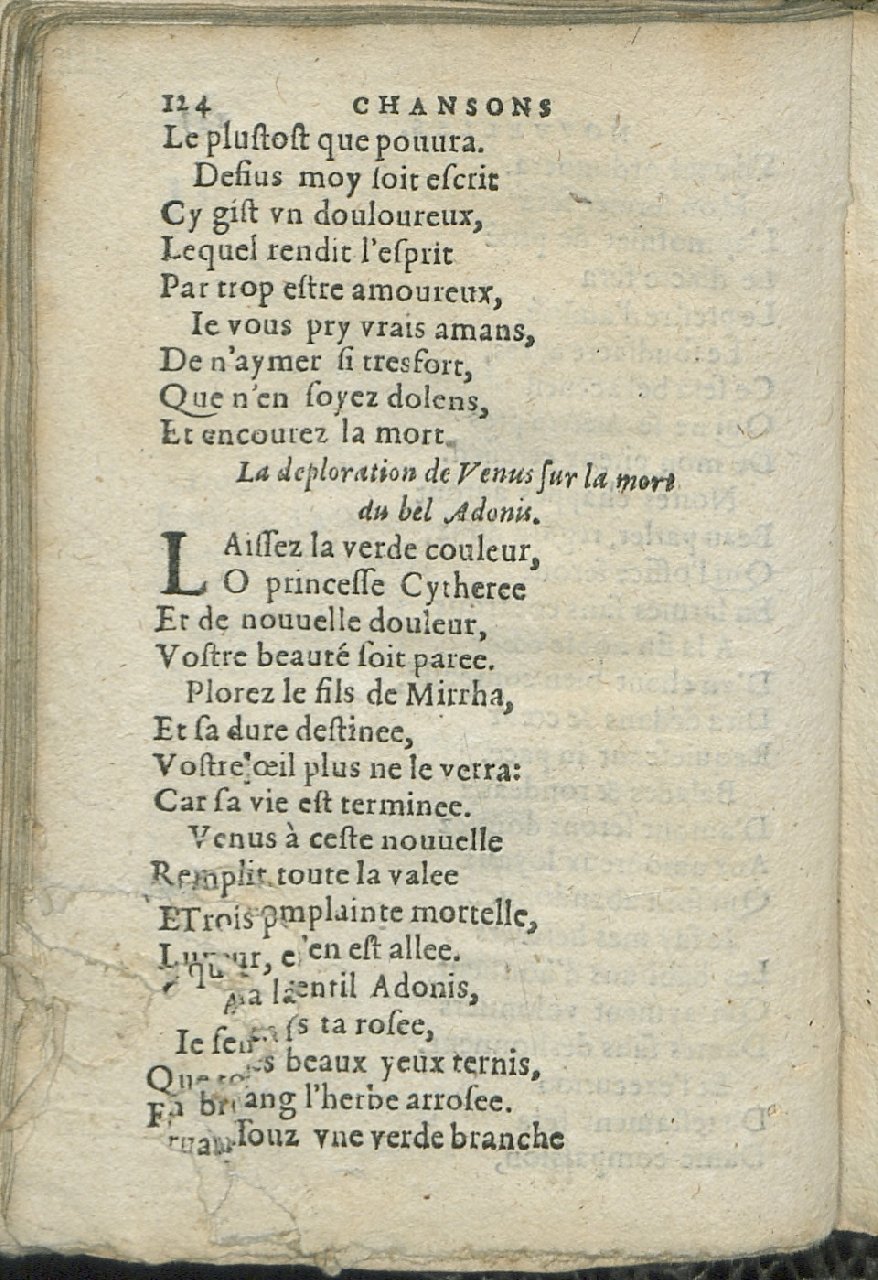 124 CHANSONS
Le pluſtoſt que pouura.
Deſius moy ſoit eſcrit
Cy giſt vn douloureux,
Lequel rendit l'eſprit
Par trop eſtre amoureux,
Ie vous pry vrais amans,
De n'aymer ſi tresfort,
Que n'en ſoyez dolens,
Et encourez la mort.
La deploration de Venus ſur la mort
du bel Adonis.
LAiſſez la verde couleur,
O princeſſe Cytheree
Et de nouuelle douleur,
Voſtre beauté ſoit paree.
Plorez le fils de Mirrha,
Et ſa dure deſtinee,
Voſtre œil plus ne le verra:
Car ſa vie eſt terminee.
Venus à ceſte nouuelle
Remplit toute la valee
omplainte mortelle,
'en eſt allee.
entil Adonis,
s ta roſee,
beaux yeux ternis,
ang l'herbe arroſee.
ſouz vne verde branche